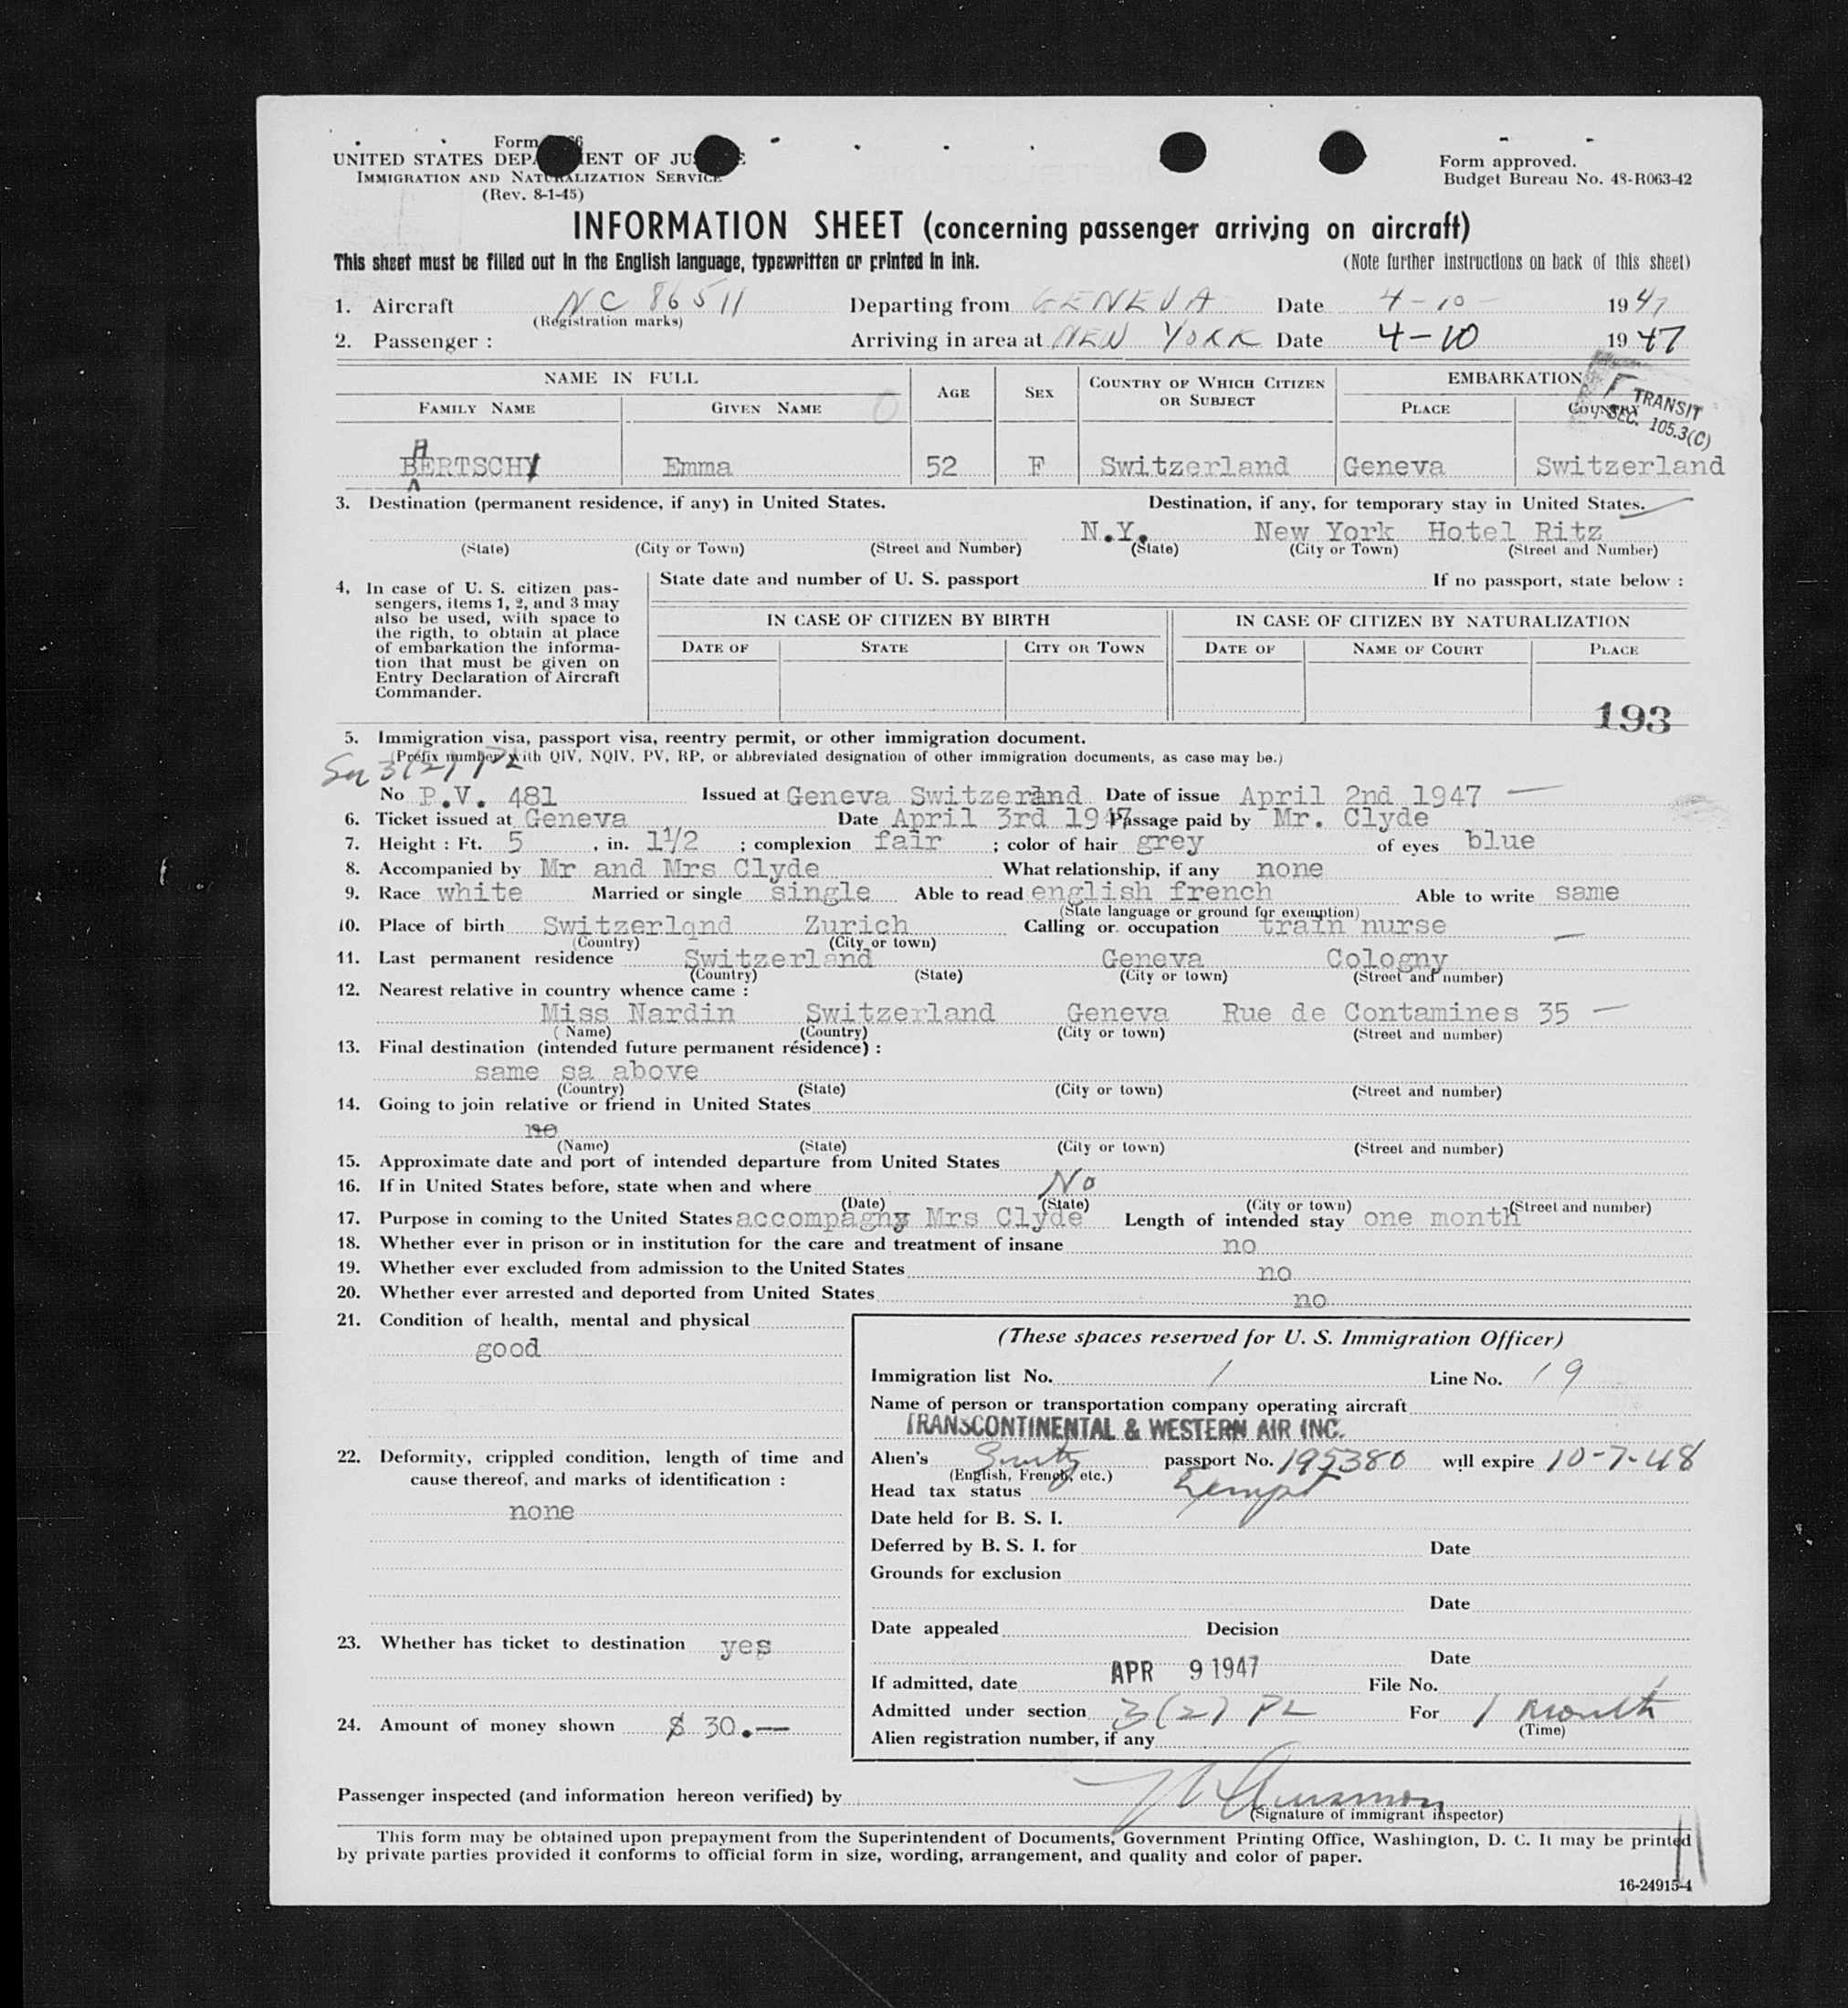 Form
UNITED STATES DEPARTMENT OF JUSTICE
IMMIGRATION AND NATURALIZATION SERVICE
(Rev. 8-1-45)
Form approved.
Budget Bureau No. 43-R063-42
INFORMATION SHEET (concerning passenger arriving on aircraft)
This sheet must be filled out in the English language, typewritten or printed in ink. (Note further instructions on back of this sheet)
1. Aircraft NC 86511 Departing from GENEVA Date 4-10- 1947
(Registration marks)
2. Passenger : Arriving in area at NEW YORK Date 4-10 1947
NAME IN FULL AGE SEX COUNTRY OF WHICH CITIZEN OR SUBJECT EMBARKATION
FAMILY NAME GIVEN NAME PLACE COUNTRY
TRANSIT
SEC. 105.3(C)
BERTSCHY Emma 52 F Switzerland Geneva Switzerland
3. Destination (permanent residence, if any) in United States. Destination, if any, for temporary stay in United States.
N.Y. New York Hotel Ritz
(State) (City or Town) (Street and Number) (State) (City or Town) (Street and Number)
4, In case of U. S. citizen pas-
sengers, items 1, 2, and 3 may
also be used, with space to
the rigth, to obtain at place
of embarkation the informa-
tion that must be given on
Entry Declaration of Aircraft
Commander.
State date and number of U. S. passport If no passport, state below :
IN CASE OF CITIZEN BY BIRTH IN CASE OF CITIZEN BY NATURALIZATION
DATE OF STATE CITY OR TOWN DATE OF NAME OF COURT PLACE
193
5. Immigration visa, passport visa, reentry permit, or other immigration document.
(Prefix number with QIV, NQIV, PV, RP, or abbreviated designation of other immigration documents, as case may be.)
3(2) PL
No P.V. 481 Issued at Geneva Switzerand Date of issue April 2nd 1947
6. Ticket issued at Geneva Date April 3rd 1947 Passage paid by Mr. Clyde
7. Height : Ft. 5 , in. 1 1/2 ; complexion fair ; color of hair grey of eyes blue
8. Accompanied by Mr and Mrs Clyde What relationship, if any none
9. Race white Married or single single Able to read english french Able to write same
(State language or ground for exemption)
10. Place of birth Switzerlqnd Zurich Calling or occupation train nurse
(Country) (City or town)
11. Last permanent residence Switzerland Geneva Cologny
(Country) (State) (City or town) (Street and number)
12. Nearest relative in country whence came :
Miss Nardin Switzerland Geneva Rue de Contamines 35
(Name) (Country) (City or town) (Street and number)
13. Final destination (intended future permanent résidence) :
same sa above
(Country) (State) (City or town) (Street and number)
14. Going to join relative or friend in United States
no
(Name) (State) (City or town) (Street and number)
15. Approximate date and port of intended departure from United States
16. If in United States before, state when and where No
(Date) (State) (City or town) (Street and number)
17. Purpose in coming to the United States accompagny Mrs Clyde Length of intended stay one month
18. Whether ever in prison or in institution for the care and treatment of insane no
19. Whether ever excluded from admission to the United States no
20. Whether ever arrested and deported from United States no
21. Condition of health, mental and physical
good
22. Deformity, crippled condition, length of time and
cause thereof, and marks of identification :
none
23. Whether has ticket to destination yes
24. Amount of money shown $ 30.—
(These spaces reserved for U. S. Immigration Officer)
Immigration list No. 1 Line No. 19
Name of person or transportation company operating aircraft
TRANSCONTINENTAL & WESTERN AIR INC.
Alien's passport No. 195380 will expire 10-7-48
(English, French, etc.)
Head tax status Exempt
Date held for B. S. I.
Deferred by B. S. I. for Date
Grounds for exclusion
Date
Date appealed Decision
Date
If admitted, date APR 9 1947 File No.
Admitted under section 3(2) PL For 1 month
(Time)
Alien registration number, if any
Passenger inspected (and information hereon verified) by
(Signature of immigrant inspector)
This form may be obtained upon prepayment from the Superintendent of Documents, Government Printing Office, Washington, D. C. It may be printed
by private parties provided it conforms to official form in size, wording, arrangement, and quality and color of paper.
16-24915-4